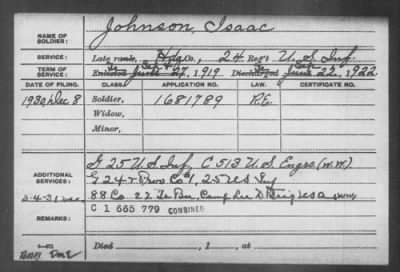 NAME OF SOLDIER: Johnson, Isaac
SERVICE: Late rank, Hdq Co., 24 Reg't U.S. Inf.
TERM OF SERVICE: Enlisted 27, 1919. Discharged 22, 1922.
DATE OF FILING. CLASS. APPLICATION NO. LAW. CERTIFICATE NO.
1930, Dec 8 Soldier, 1681789 R.E.
Widow,
Minor,
ADDITIONAL SERVICES: G 25 U.S. Inf, C 513 U.S. Engrs. (W.W.)
G 24 & Prov Co #1, 25 U.S. Inf
3-4-31 88 Co 22 Tr Bn, Camp Lee D Brig USA (WW)
C 1 665 779 COMBINED
REMARKS:
Died , 1 , at